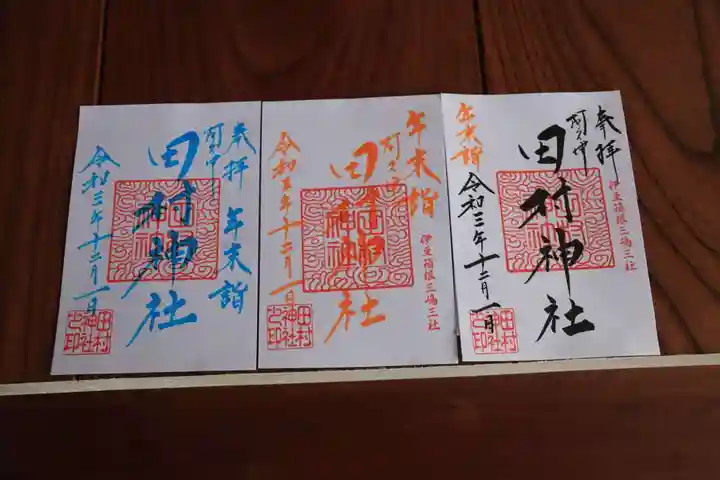 奉拝 年末詣
田村神社
令和三年十二月一日
田村神社之印
年末詣
伊豆箱根三嶋三社
田村神社
令和三年十二月一日
田村神社之印
奉拝
伊豆箱根三嶋三社
田村神社
年末詣
令和三年十二月一日
田村神社之印